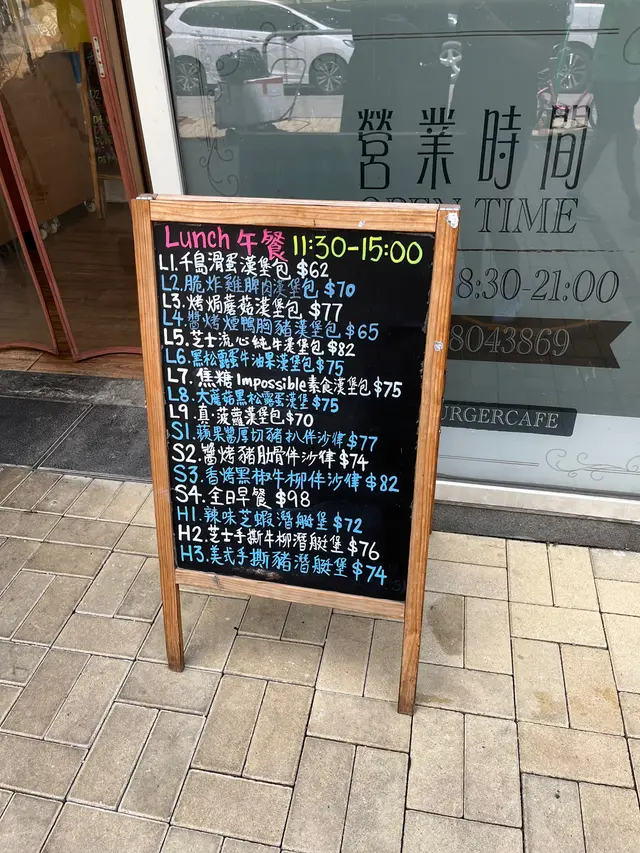 營業時間
OPEN TIME
8:30-21:00
8043869
URGERCAFE
Lunch 午餐 11:30-15:00
L1.千島滑蛋漢堡包 $62
L2.脆炸雞脾肉漢堡包 $70
L3.烤焗蘑菇漢堡包 $77
L4.醬烤煙鴨胸豬漢堡包 $65
L5.芝士流心純牛漢堡包 $82
L6.黑松露蛋牛油果漢堡包 $75
L7.焦糖Impossible素食漢堡包 $75
L8.大蘑菇黑松露蛋漢堡 $75
L9.真·菠蘿漢堡包 $70
S1.蘋果醬厚切豬扒伴沙律 $77
S2.醬烤豬肋骨伴沙律 $74
S3.香烤黑椒牛柳伴沙律 $82
S4.全日早餐 $98
H1.辣味芝蝦潛艇堡 $72
H2.芝士手撕牛柳潛艇堡 $76
H3.美式手撕豬潛艇堡 $74